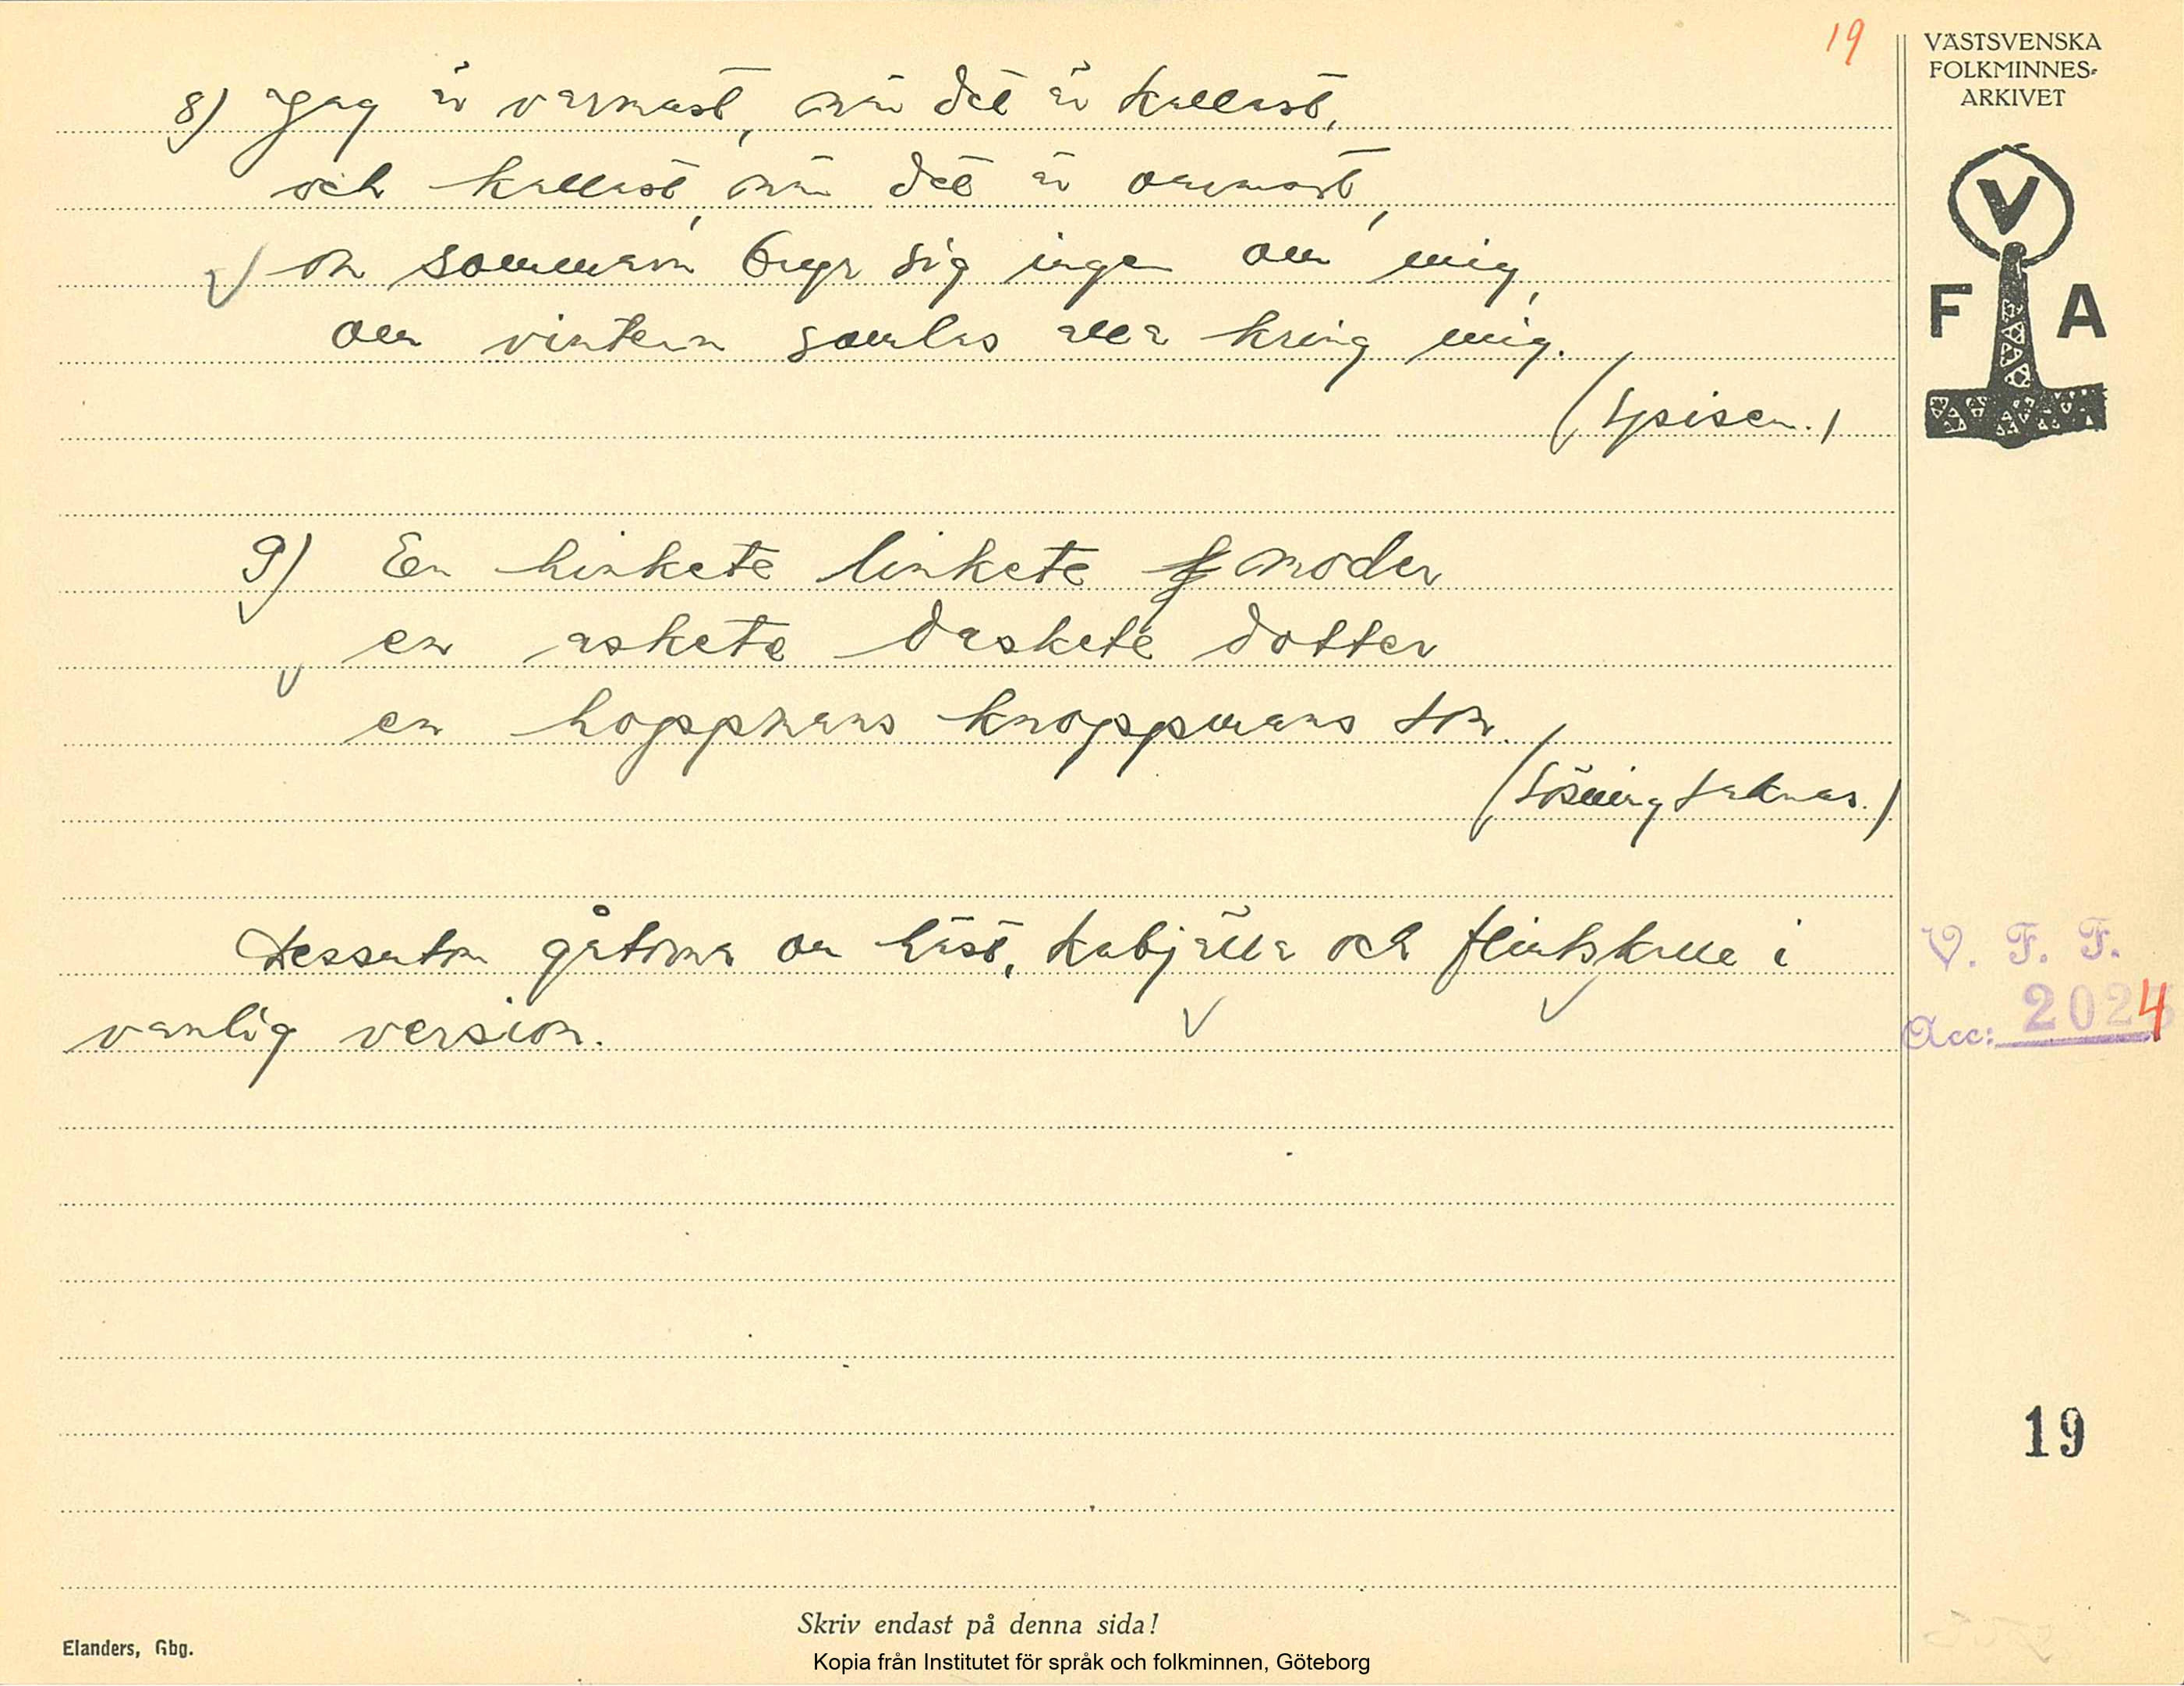 19
VÄSTSVENSKA
FOLKMINNES-
ARKIVET
V
F A
8) Jag är varmast, när det är kallast,
och kallast, när det är varmast,
om sommarn bryr sig ingen om mig,
om vintern samlas alla kring mig.
(Spisen.)
9) En hinkete linkete moder
en askete daskete dotter
en hoppmans knoppmans son.
(Lösning saknas.)
Dessutom gåtorna om häst, kobjälla och flintskalle i
vanlig version.
V. F. F.
Acc: 2024
19
Skriv endast på denna sida!
Elanders, Gbg.
Kopia från Institutet för språk och folkminnen, Göteborg